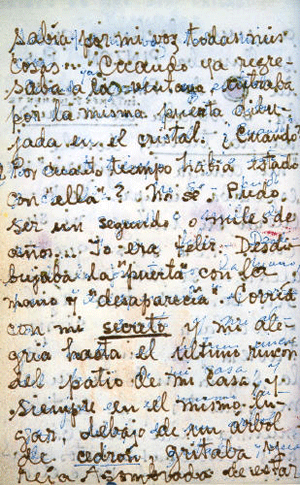 sabía por mi voz todas mis
cosas... Cuando ya regre-
saba a la ventana, entraba
por la misma puerta dibu-
jada en el cristal. ¿Cuando?
¿Por cuanto tiempo había estado
con "ella"? No sé. Pudo
ser un segundo o miles de
años... Yo era feliz. Desdi-
bujaba la "puerta" con la
mano y "desaparecía". Corría
con mi secreto y mi ale-
gría hasta el último rincon
del patio de mi casa, y
siempre en el mismo lu-
gar, debajo de un arbol
de cedron, gritaba y
reia Asombrada de estar